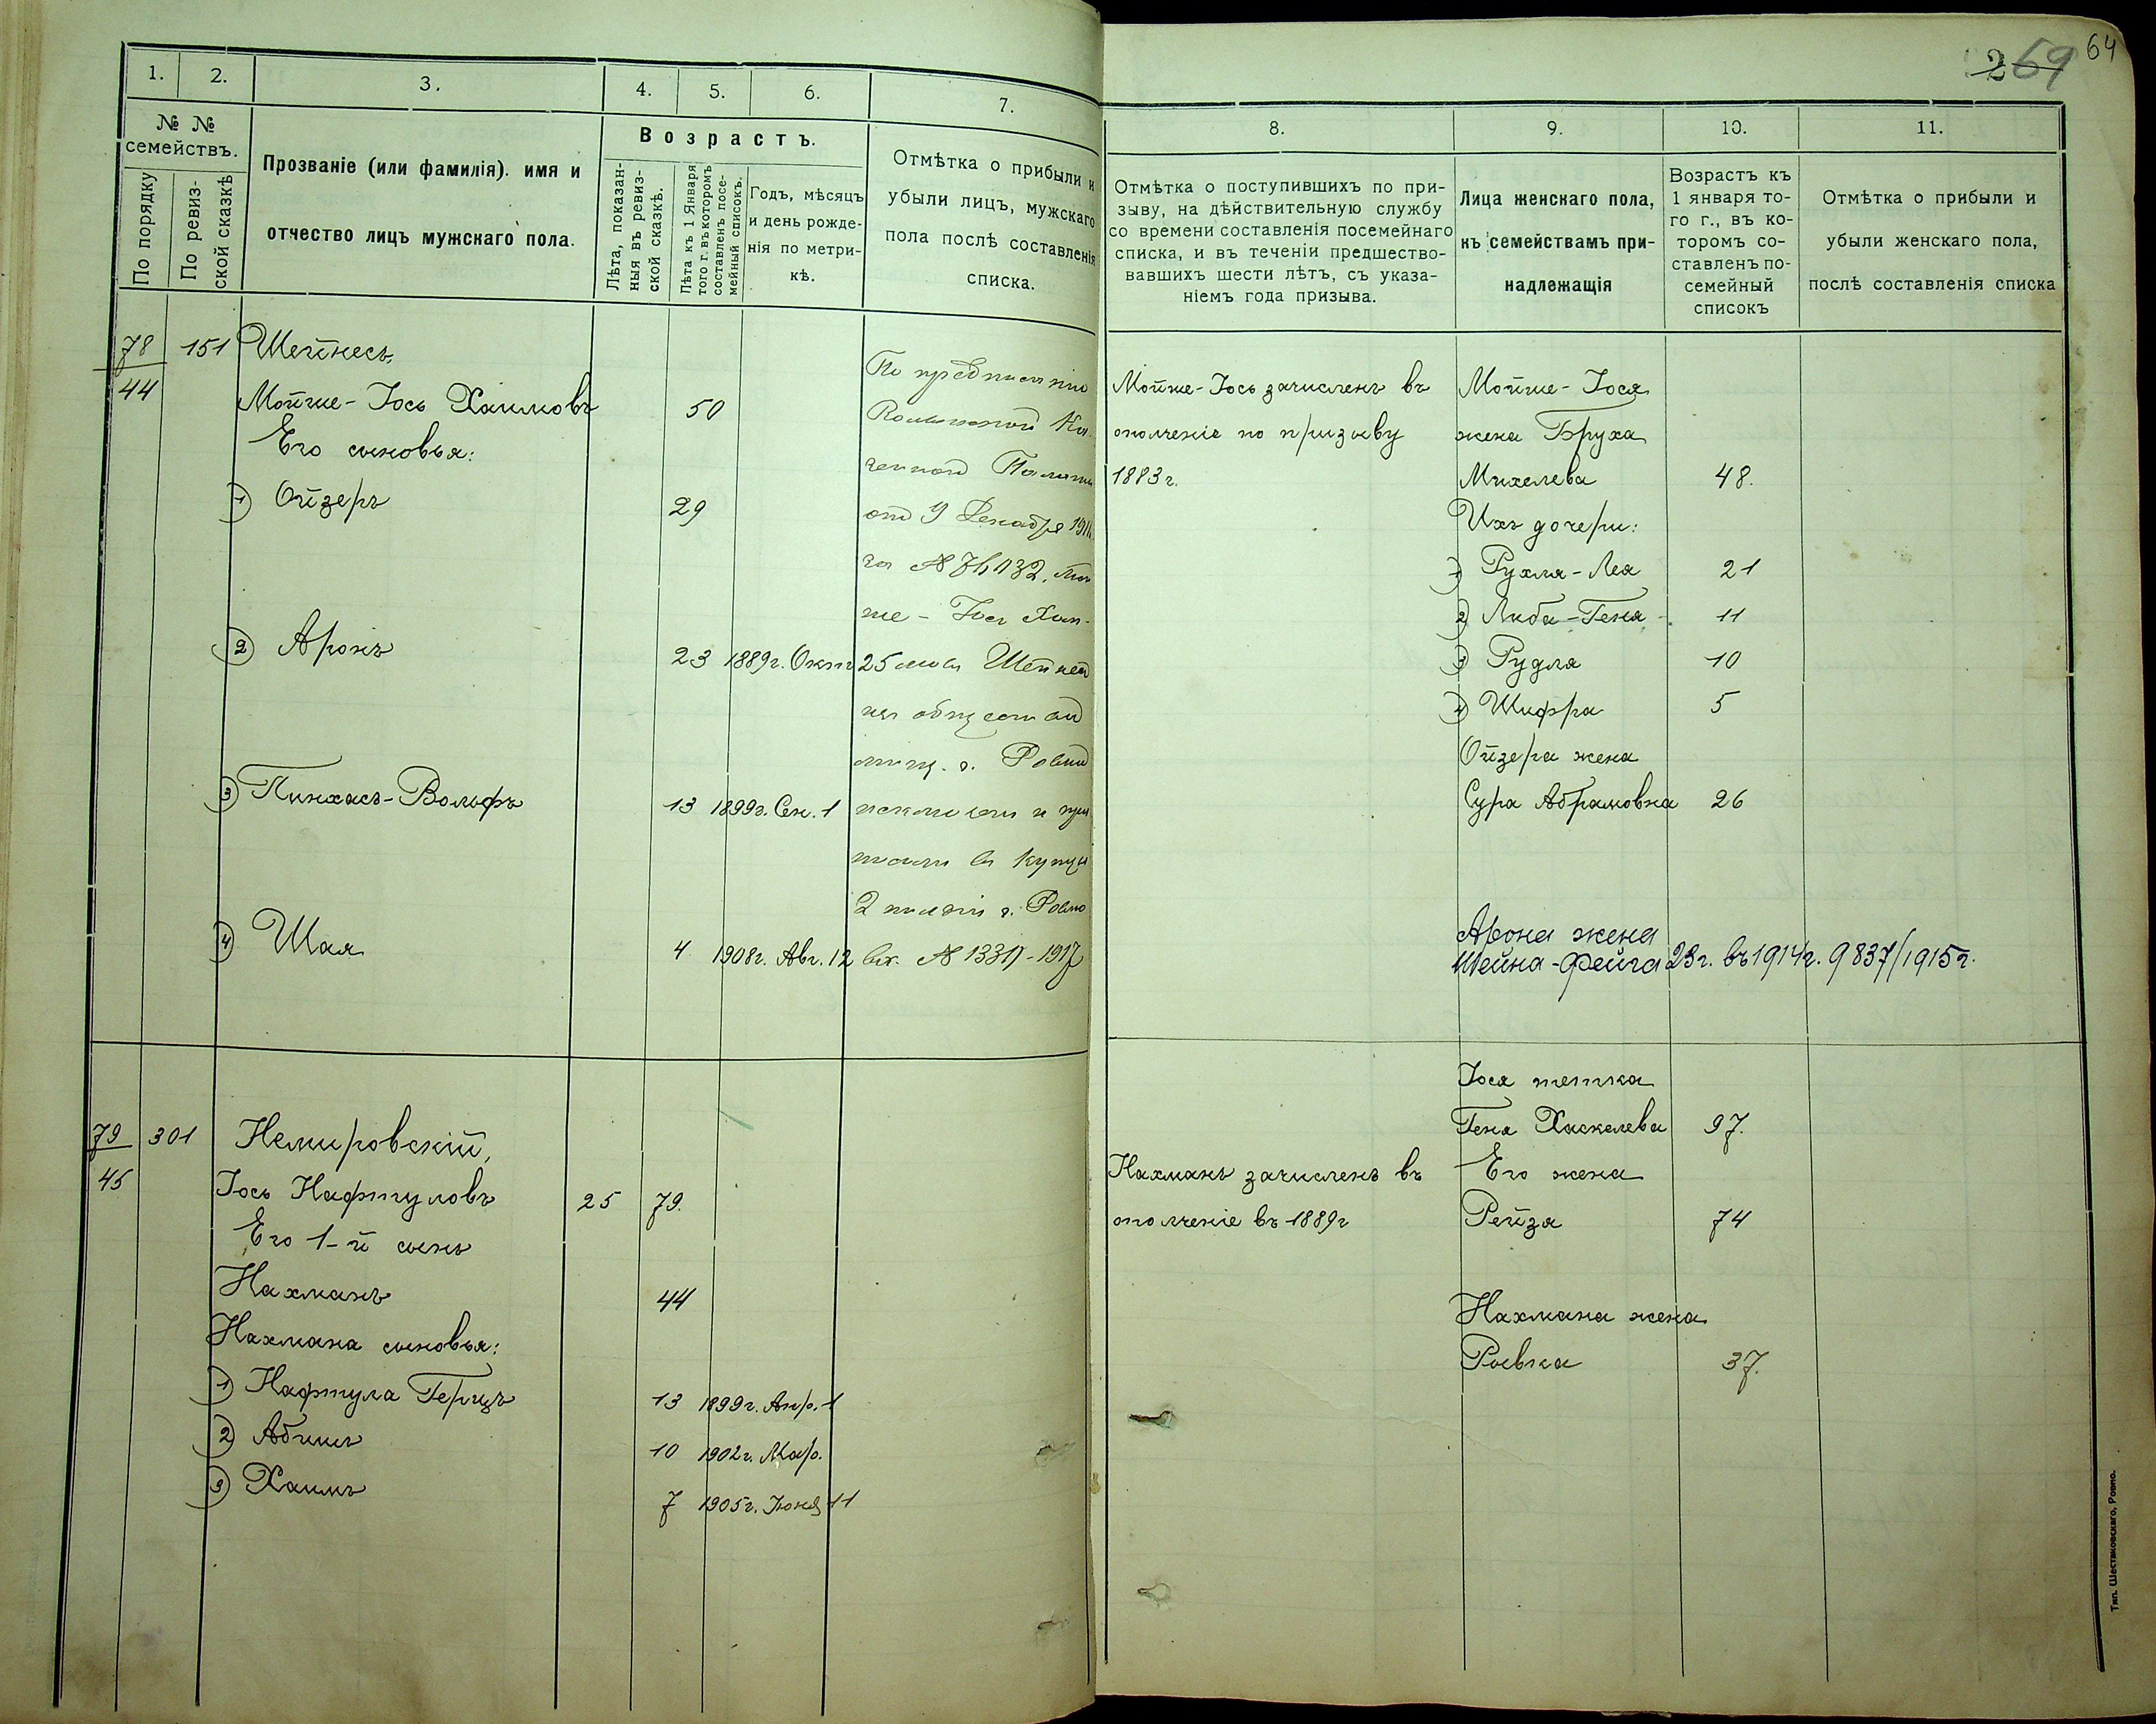 2 69 64
1. 2. 3. 4. 5. 6. 7.
№ №
семействъ.
По порядку
По ревиз-
ской сказкѣ
Прозваніе (или фамилія). имя и
отчество лицъ мужскаго пола.
Возрастъ.
Лѣта, показан-
ныя въ ревиз-
ской сказкѣ.
Лѣта къ 1 Января
того г. въ которомъ
составленъ посе-
мейный списокъ.
Годъ, мѣсяцъ
и день рожде-
нія по метри-
кѣ.
Отмѣтка о прибыли и
убыли лицъ, мужскаго
пола послѣ составленія
списка.
78 151 Шейнесъ,
44
Мойше-Іось Хаимовъ 50
Его сыновья:
1) Ойзеръ 29
2) Аронъ 23 1889г. Окт 25
3) Пинхасъ-Вольфъ 13 1899г. Сен. 1
4) Шая 4 1908г. Авг. 12
По предписанію
Казенной Палаты
отъ 9 Декабря 1911
за №
ше-Іось Хаи-
мовъ Шейнес
изъ общества
мѣщ. г. Ровно
исключенъ и при
писанъ въ купцы
2 гильдіи г. Ровно
вх. №
79 301 Немировскій,
45
Іось Нафтуловъ 25 79.
Его 1-й сынъ
Нахманъ 44
Нахмана сыновья:
1) Нафтула Герцъ 13 1899г. Апр. 1
2) 10 1902г. Мар.
3) Хаимъ 7 1905г. Іюня 11
8. 9. 10. 11.
Отмѣтка о поступившихъ по при-
зыву, на дѣйствительную службу
со времени составленія посемейнаго
списка, и въ теченіи предшество-
вавшихъ шести лѣтъ, съ указа-
ніемъ года призыва.
Лица женскаго пола,
къ семействамъ при-
надлежащія
Возрастъ къ
1 января то-
го г., въ ко-
торомъ со-
ставленъ по-
семейный
списокъ
Отмѣтка о прибыли и
убыли женскаго пола,
послѣ составленія списка
Мойше-Іось зачисленъ въ
ополченіе по призыву
1883г.
Мойше-Іося
жена Бруха
Михелева 48.
Ихъ дочери:
1) Рухля-Лея 21
2) Либа-Геня 11
3) Рудля 10
4) Шифра 5
Ойзера жена
Сура Абрамовна 26
Арона жена
Шейна-Фейга 23г. въ 1914г. 9837/1915г.
Іося тетка
Геня Хаскелева 97.
Нахманъ зачисленъ въ
ополченіе въ 1889г
Его жена
Рейза 74
Нахмана жена
Рывка 37.
Тип. Шестаковскаго, Ровно.